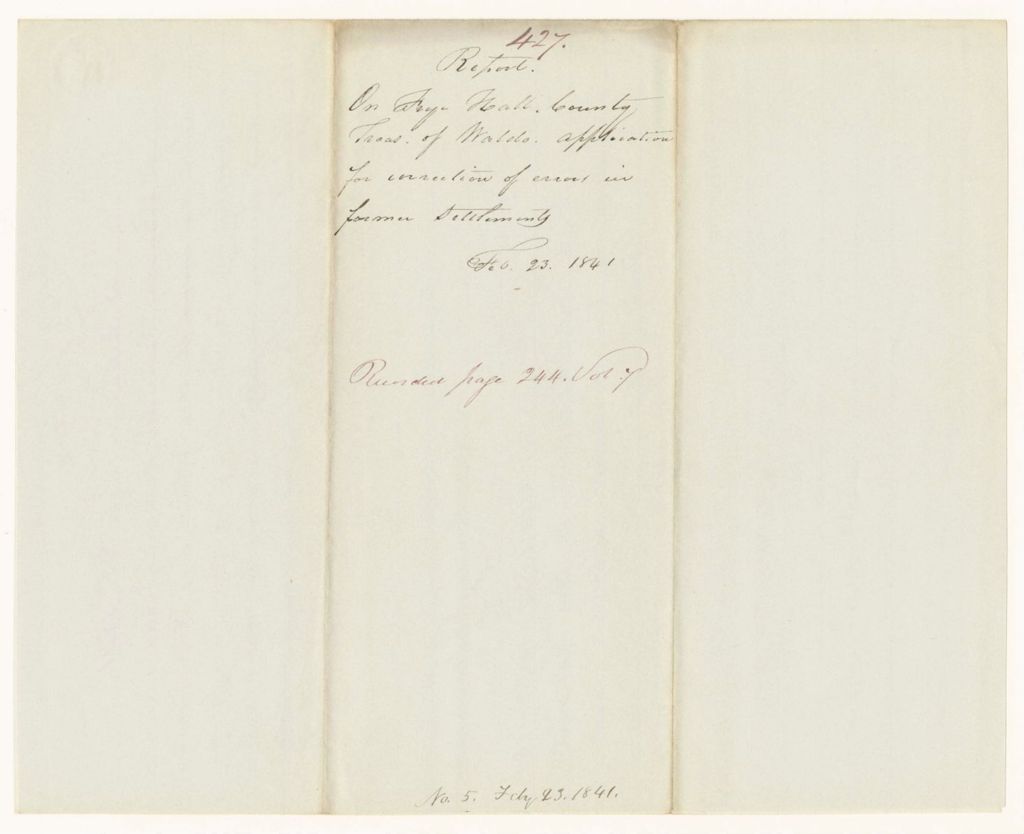 427.
Report.
On Frye Hall. County
Treas. of Waldo. application
for correction of errors in
former Settlements
Feb. 23. 1841
Recorded page 244. Vol. 7
No. 5. Feby 23. 1841.